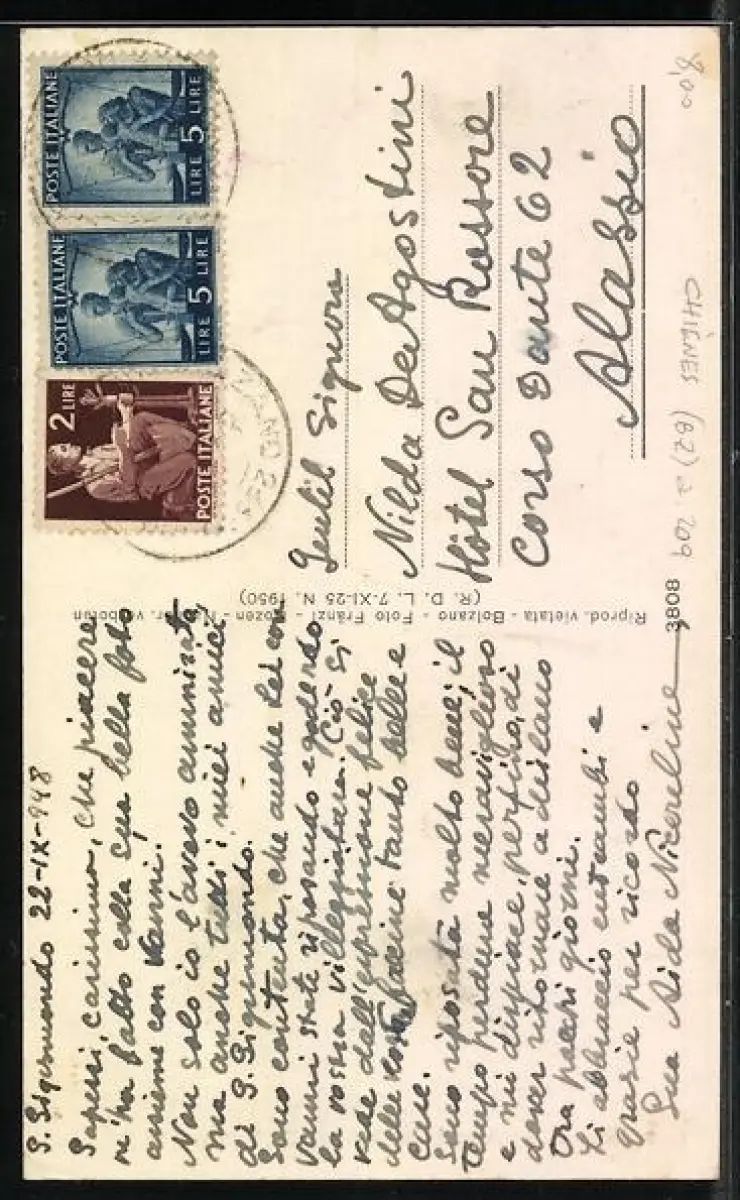 S. Sigismondo 22-IX-948
Sapessi, carissima, che piacere
m'ha fatto colla sua bella foto
assieme con Vanni.
Non solo io l'avevo ammirata,
ma anche tutti i miei amici
di S. Sigismondo.
Sono contenta, che anche Lei con
Vanni state riposando e godendo
la vostra villeggiatura. Ciò si
vede dall'espressione felice
delle vostre faccine tanto belle e
care.
Sono riposata molto bene; il
tempo perdura meraviglioso
e mi dispiace perfino, di
dover ritornare a Milano
tra pochi giorni.
Li abbraccio entrambi e
grazie per ricordo
Sua Aida
Riprod. vietata - Bolzano - Foto Fränzl - Bozen - Nachdr. verboten
(R. D. L. 7-XI-25 N. 1950)
3808
POSTE ITALIANE
LIRE 5 LIRE
POSTE ITALIANE
LIRE 5 LIRE
2 LIRE
POSTE ITALIANE
Gentil Signora
Nilda De Agostini
Hôtel San Rossore
Corso Dante 62
Alassio
8,00
CHIENES (BZ) 2.209